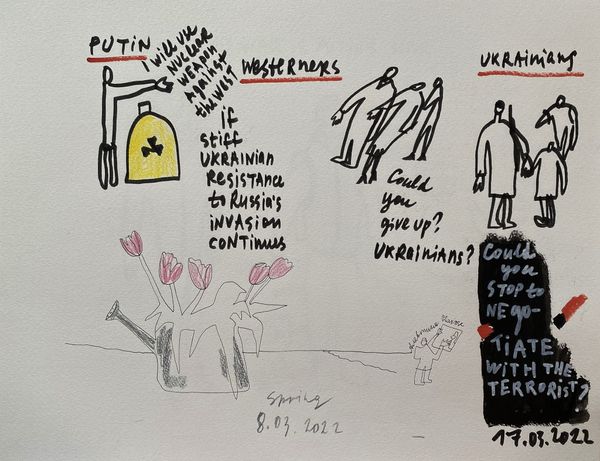 PUTIN
will use
NUCLEAR
WEAPON
AGAINST
the WEST
If
stiff
UKRAINIAN
RESISTANCE
to RUSSIA'S
INVASION
CONTINUES
WESTERNERS
Could
you
give up?
UKRAINIANS?
UKRAINIANS
Could
you
STOP to
NEGO-
TIATE
WITH THE
TERRORIST?
17.03.2022
Spring
8.03.2022